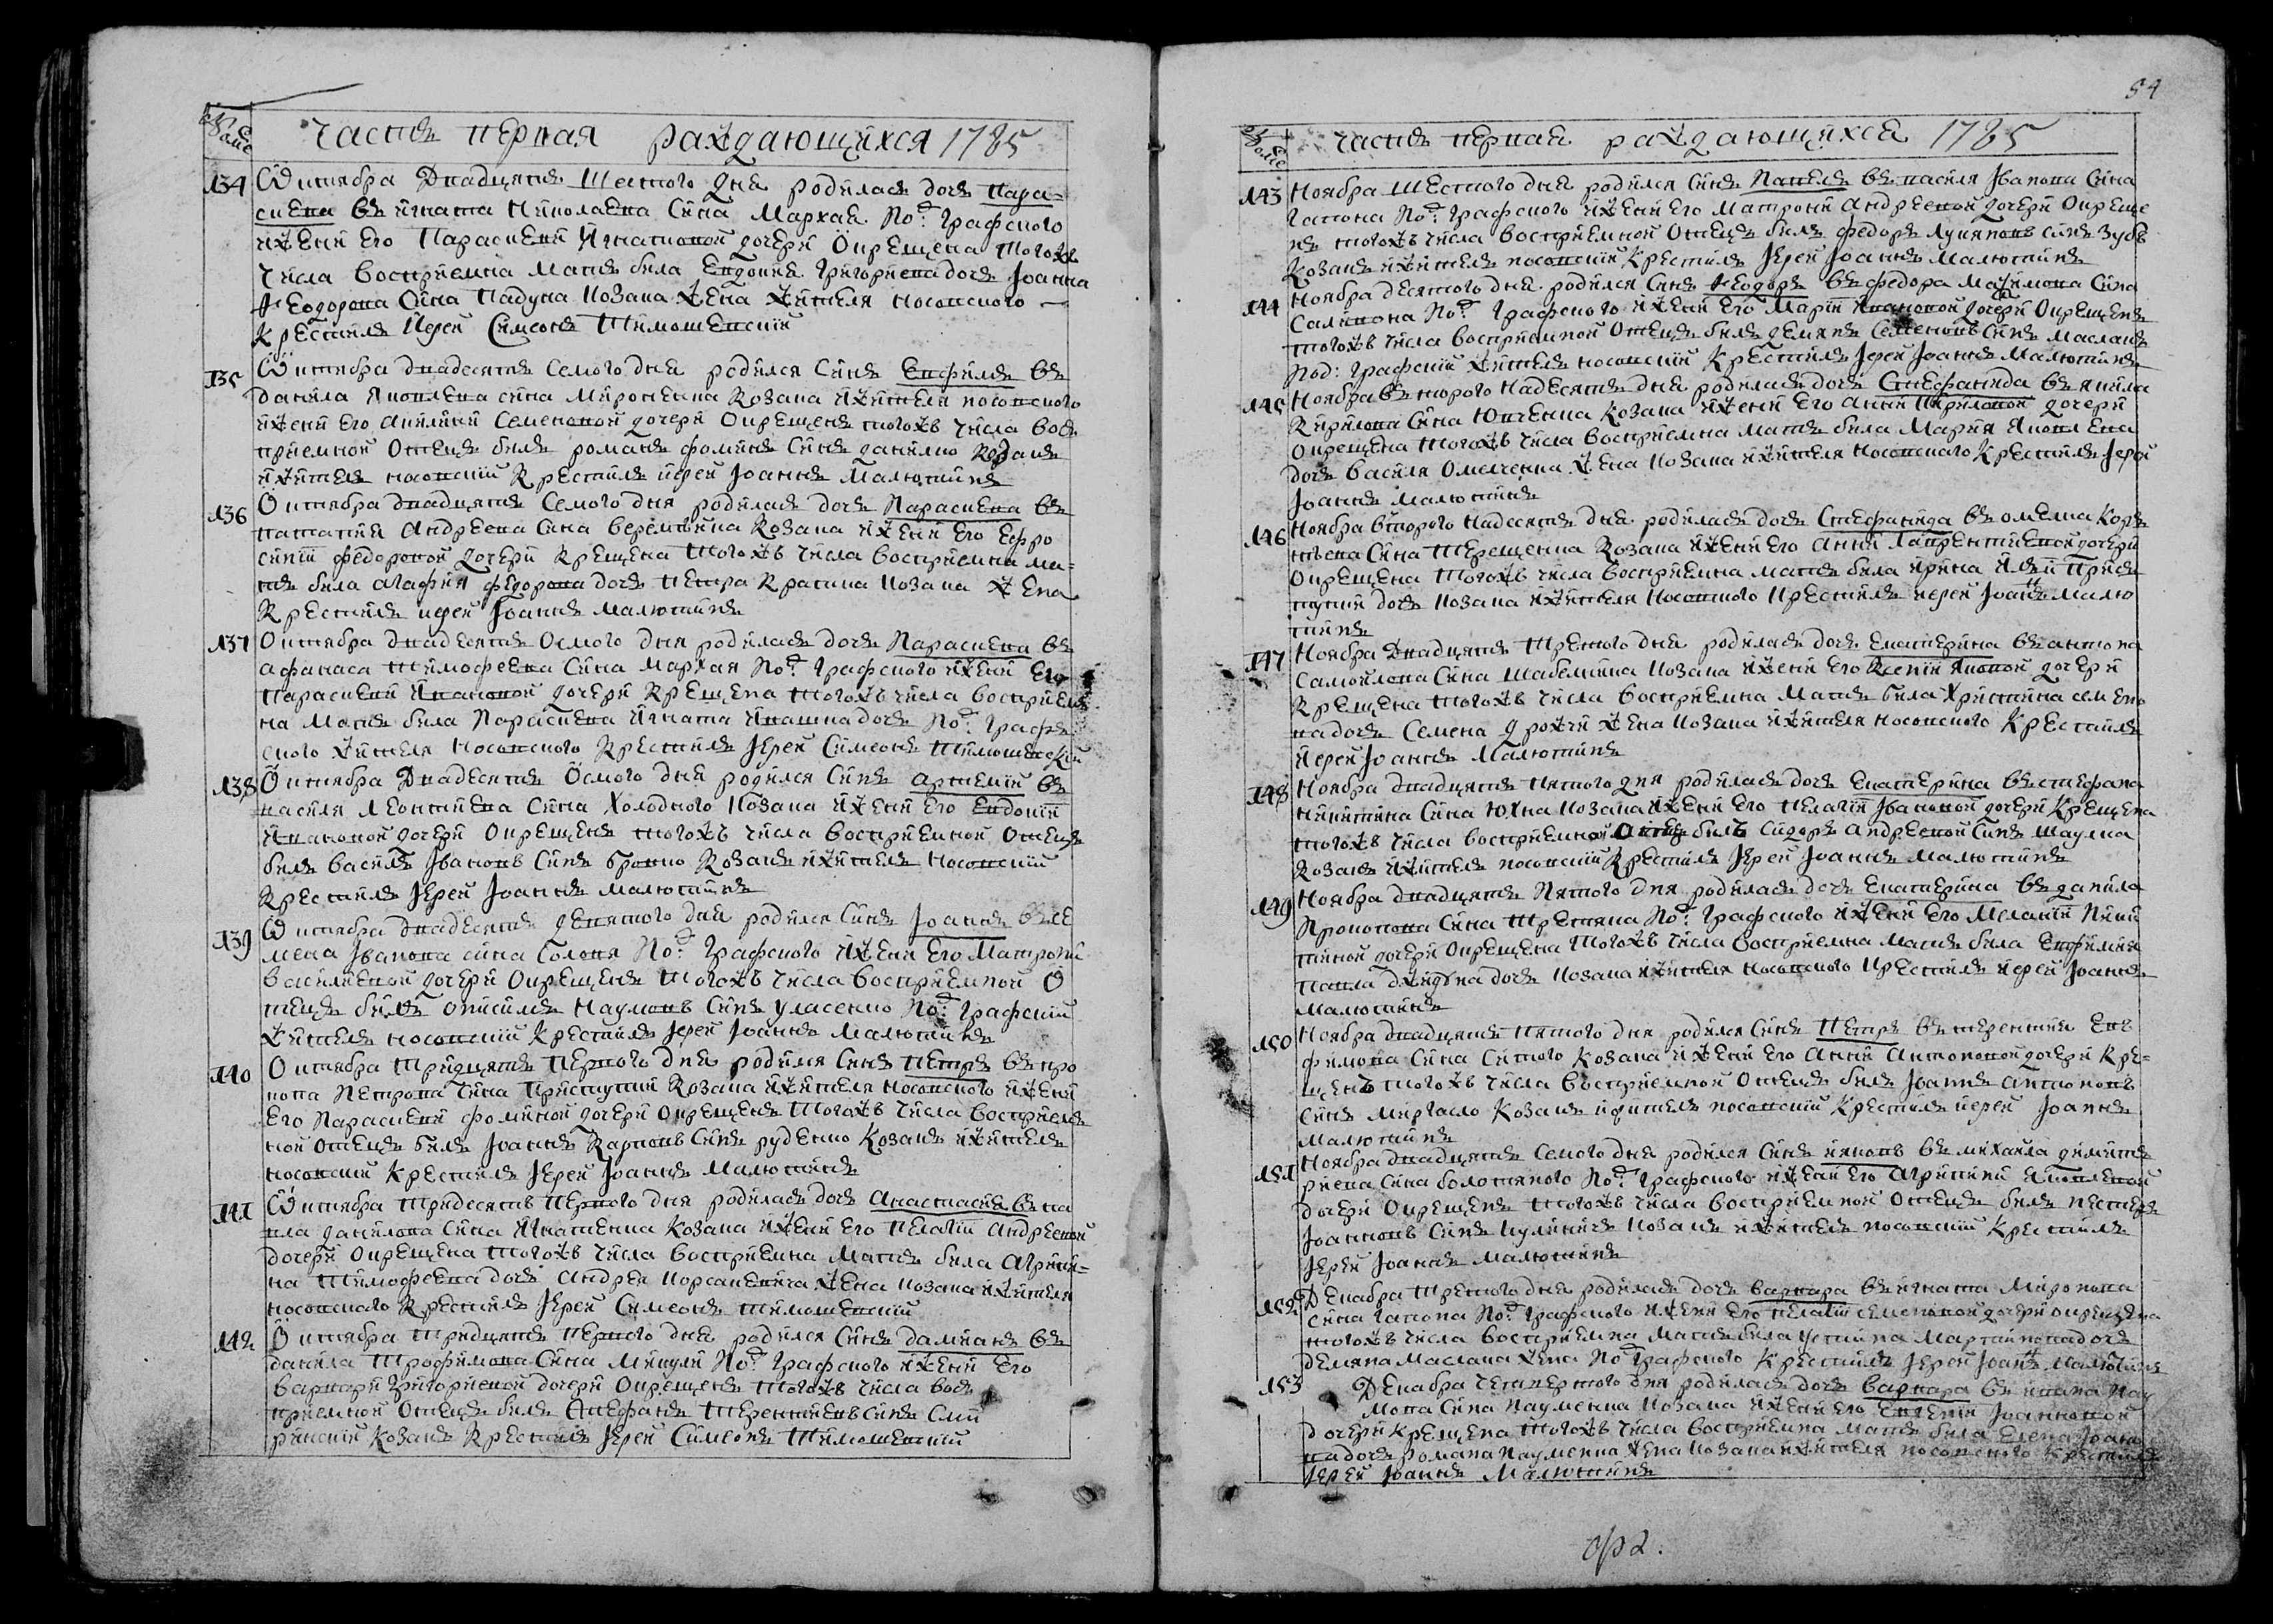 Часть первая раждающихся 1785
134 Октября двадцять шестого дня родилась дочь Пара-
скева въ Игната Николаева сина Мархая по<sup>д</sup>: графского
и жени его Параскеви Игнатовой дочери окрещена тогожъ
числа восприемна мать била Евдокия Григориева дочь Иоанна
Феодорова сина Падуна козака жена жителя носовского
крестиль иерей Симеонь Тимошевский
135 Октября двадесять семого дня родился синь Евфиль въ
Данила Яковлева сина Мироненка козака и жителя носовского
и жени его Акилини Семеновой дочери окрещень тогожъ числа вось
приемной отець биль Романь Фоминь синь Данилко козакь
и житель носовский крестиль иерей Иоаннь Малютинь
136 Октября двадцять семого дня родилась дочь Параскева въ
Андреева сина Веремиена козака и жени его Ефро
синии Федоровой дочери крещена тогожъ числа восприемна ма-
ть била Агафия Федорова дочь Петра козака жена
крестиль иерей Иоаннь Малютинь
137 Октября двадесять осмого дня родилась дочь Параскева въ
Афанаса Тимофеева сина Мархая по<sup>д</sup>: графского и жени его
Параскеви Ивановой дочери крещена тогожъ числа восприем
на мать била Параскева Игната Ивашка дочь по<sup>д</sup>: граф
ского жителя носовского крестиль иерей Симеонь Тимошевский
138 Октября двадесять осмого дня родился синь Артемий въ
василя Леонтиева сина Холодного козака и жени его Евдокии
Ивановой дочери окрещень тогожъ числа восприемной отець
биль Василь Ивановъ синь Бровко козакь и житель носовский
крестиль иерей Иоаннь Малютинь
139 Октября двадесять девятого дня родился синь Иоаннь въ Се
мена Иванова сина по<sup>д</sup>: графского и жени его Матрони
Василиевой дочери окрещень тогожъ числа восприемной о
тець биль Онисимь Наумовъ синь Уласенко по<sup>д</sup>: графский
житель носовский крестиль иерей Иоаннь Малютинь
140 Октября тридцять первого дня родился синь Петрь въ Про
копа Петрова сина Приступий козака и жителя носовского и жени
его Параскеви Фоминой дочери окрещень тогожъ числа восприем
ной отець биль Иоаннь Карповъ синь Руденко козакь и житель
носовский крестиль иерей Иоаннь Малютинь
141 Октября тридесять первого дня родилась дочь Анастасия въ Па
вла Данилова сина Игнатенка козака и жени его Пелагии Андреевой
дочери окрещена тогожъ числа восприемна мать била Агрипи-
на Тимофеева дочь Андрея жена козака и жителя
носовского крестиль иерей Симеонь Тимошевский
142 Октября тридцять первого дня родился синь Дамиань въ
Данила Трофимова сина Микули по<sup>д</sup>: графского и жени его
Варвари Григориевой дочери окрещень тогожъ числа вось
приемной отець биль Стефань Терентиевъ синь
козакь крестиль иерей Симеонь Тимошевский
54
Часть первая раждающихся 1785
143 Ноября шестого дня родился синь Павель въ Василя Иванова сина
Гапона по<sup>д</sup>: графского и жени его Матрони Андреевой дочери окреще
нь тогожъ числа восприемной отець биль Федорь Лукяновъ синь Зубъ
козакь и житель носовский крестиль иерей Иоаннь Малютинь
144 Ноября десятого дня родился синь Феодорь въ Федора Мазимова сина
по<sup>д</sup>: графского и жени его Марии Ивановой дочери окрещень
тогожъ числа восприемной отець биль Демянь Семеновъ синь Маслакь
под: графский житель носовский крестиль иерей Иоаннь Малютинь
145 Ноября второго надесять дня родилась дочь Стефанида въ Якима
Кирилова сина Ютченка козака и жени его Анни Кириловой дочери
окрещена тогожъ числа восприемна мать била Мария Яковлева
дочь Василя Омелченка жена козака и жителя носовского крестиль иерей
Иоаннь Малютинь
146 Ноября второго надесять дня родилась дочь Стефанида въ Омелка Корн
иева сина Терещенка козака и жени его Анни Лаврентиевой дочери
окрещена тогожъ числа восприемна мать била Ирина Присв
тупий дочь козака и жителя носовского крестиль иерей Иоаннь Малю
тинь
147 Ноября двадцять третого дня родилась дочь Екатерина въ Антона
Самойлова сина Шабелника козака и жени его Ксении Яковой дочери
крещена тогожъ числа восприемна мать била Христина Семено
ва дочь Семена жена козака и жителя носовского крестиль
иерей Иоаннь Малютинь
148 Ноября двадцять пятого дня родилась дочь Екатерина въ Стефана
Никитина сина Юхна козака и жени его Пелагии Ивановой дочери крещена
тогожъ числа восприемной отець билъ Сидорь Андреевой синь Шаулка
козакь и житель носовский крестиль иерей Иоаннь Малютинь
149 Ноября двадцять пятого дня родилась дочь Екатерина въ Данила
Прокопова сина Третяка по<sup>д</sup>: графского и жени его Мелании Ники
тиной дочери окрещена тогожъ числа восприемна мать била Евфимия
Павла дочь козака и жителя носовского крестиль иерей Иоаннь
Малютинь
150 Ноября двадцять пятого дня родился синь Петрь въ Терентия Ев
фимова сина Ситого козака и жени его Анни Антоновой дочери кре-
щенъ тогожъ числа восприемной отець биль Иоаннь Антоновъ
синь козакь и житель носовский крестиль иерей Иоаннь
Малютинь
151 Ноября двадцять семого дня родился синь Яковъ въ Михаила Димит
риева сина Болотяного по<sup>д</sup>: графского и жени его Агрипини Яковлевой
дочери окрещень тогожъ числа восприемной отець биль Петрь
Иоанновъ синь Куличь козакь и житель носовский крестиль
иерей Иоаннь Малютинь
152 Декабра третого дня родилась дочь Варвара въ Игната Миронова
сина Гапона по<sup>д</sup>: графского и жени его Пелагии Семеновой дочери окрещена
тогожъ числа восприемна мать била Устина Мартинова дочь
Демяна Маслака жена по<sup>д</sup>: графского крестиль иерей Иоаннь Малютинь
153 Декабра четвертого дня родилась дочь Варвара въ Якима Нау
мова сина Науменка козака и жени его Евгении Иоанновой
дочери крещена тогожъ числа восприемна мать била Елена Иоано
ва дочь Романа Науменка жена козака и жителя носовского крестиль
иерей Иоаннь Малютинь